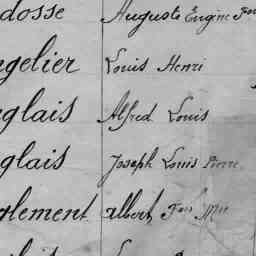 dosse Auguste Eugène
gelier Louis Henri
glais Alfred Louis
glais Joseph Louis Pierre
glement Albert Fois Mie